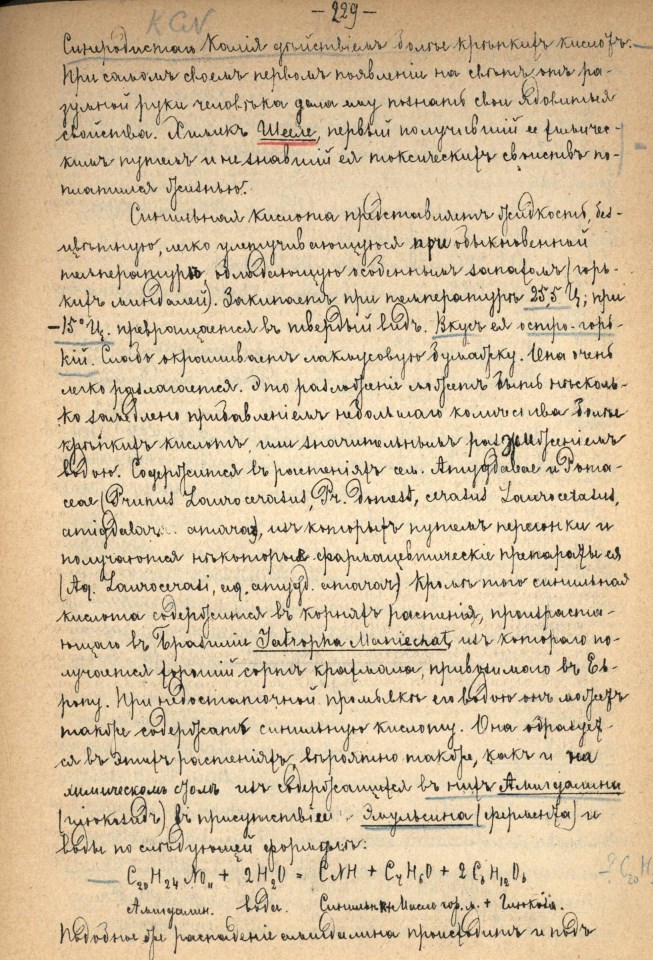 — 229 —
KCN
Синеродистаго Калія дѣйствіемъ болѣе крѣпкихъ кислотъ.
При самомъ своемъ первомъ появленіи на свѣтъ отъ ра-
зумной руки человѣка дала ему познать свои ядовитыя
свойства. Химикъ Шееле, первый получившій ее химичес-
кимъ путемъ и не знавшій ея токсическихъ свойствъ по-
платился жизнью.
Синильная кислота представляетъ жидкость, без-
цвѣтную, легко улетучивающуюся при обыкновенной
температурѣ, обладающую особеннымъ запахомъ (горь-
кихъ миндалей). Закипаетъ при температурѣ 25,5 Ц; при
-15° Ц. превращается въ твердый видъ. Вкусъ ея остро-горь-
кій. Слабо окрашиваетъ лакмусовую бумажку. Она очень
легко разлагается. Это разложеніе можетъ быть нѣсколь-
ко замедлено прибавленіемъ небольшаго количества болѣе
крѣпкихъ кислотъ, или значительнымъ разжиженіемъ
водою. Содержится въ растеніяхъ сем. Amygdaleae и Poma-
ceae (Prunus Laurocerasus, Pr. Domest, cerasus Laurocetasus,
amigdalar. amarar), изъ которыхъ путемъ перегонки и
получаются нѣкоторые фармацевтическіе препараты ея
(Aq. Laurocerasi, aq. amygd. amarar) Кромѣ того синильная
кислота содержится въ корняхъ растенія, произраста-
ющаго въ Бразиліи Jatropha Maniechat, изъ котораго по-
лучается хорошій сортъ крахмала, привозимаго въ Ев-
ропу. При недостаточной промывкѣ его водою онъ можетъ
также содержать синильную кислоту. Она образует-
ся въ этихъ растеніяхъ, вѣроятно также, какъ и на
химическомъ столѣ изъ содержащихся въ нихъ Амигдалина
(глюкозидъ) въ присутствіи Эмульсина (фермента) и
воды по слѣдующей формулѣ:
C20H24NO11 + 2H2O = CNH + C7H6O + 2C6H12O6
Амигдалин. вода. Синильн.к. Масло гор. м. + Глюкоза.
Подобное же распаденіе амигдалина происходитъ и подъ